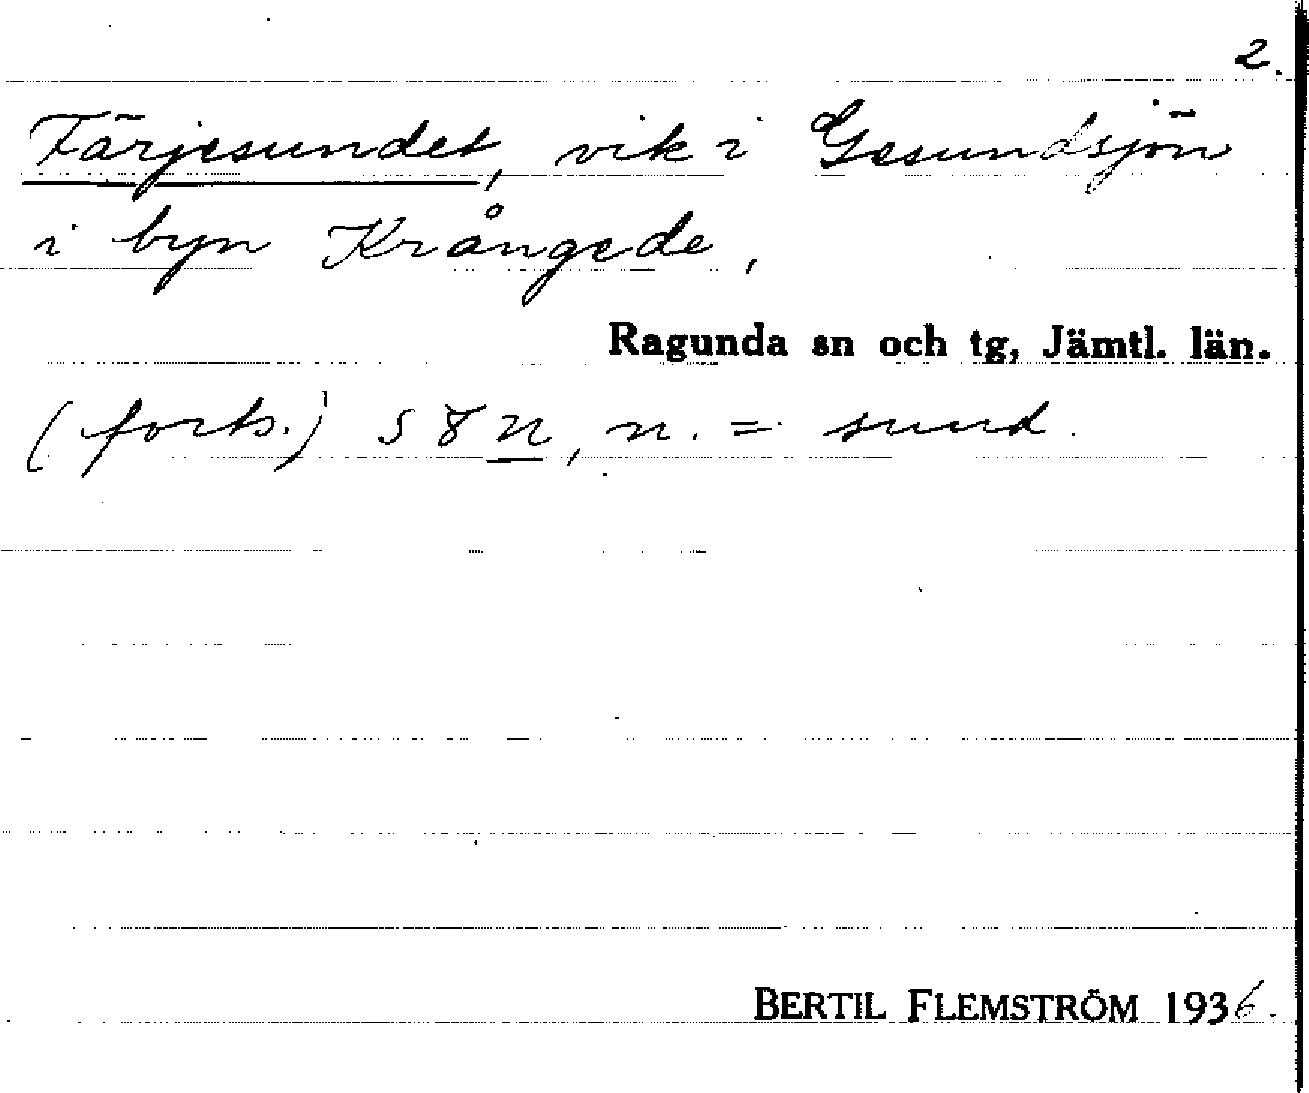 2.
Färjesundet, vik i Gesundsjön
i byn Krångede,
Ragunda sn och tg, Jämtl. län.
(forts.) s8n, n. = sund.
BERTIL FLEMSTRÖM 1936.